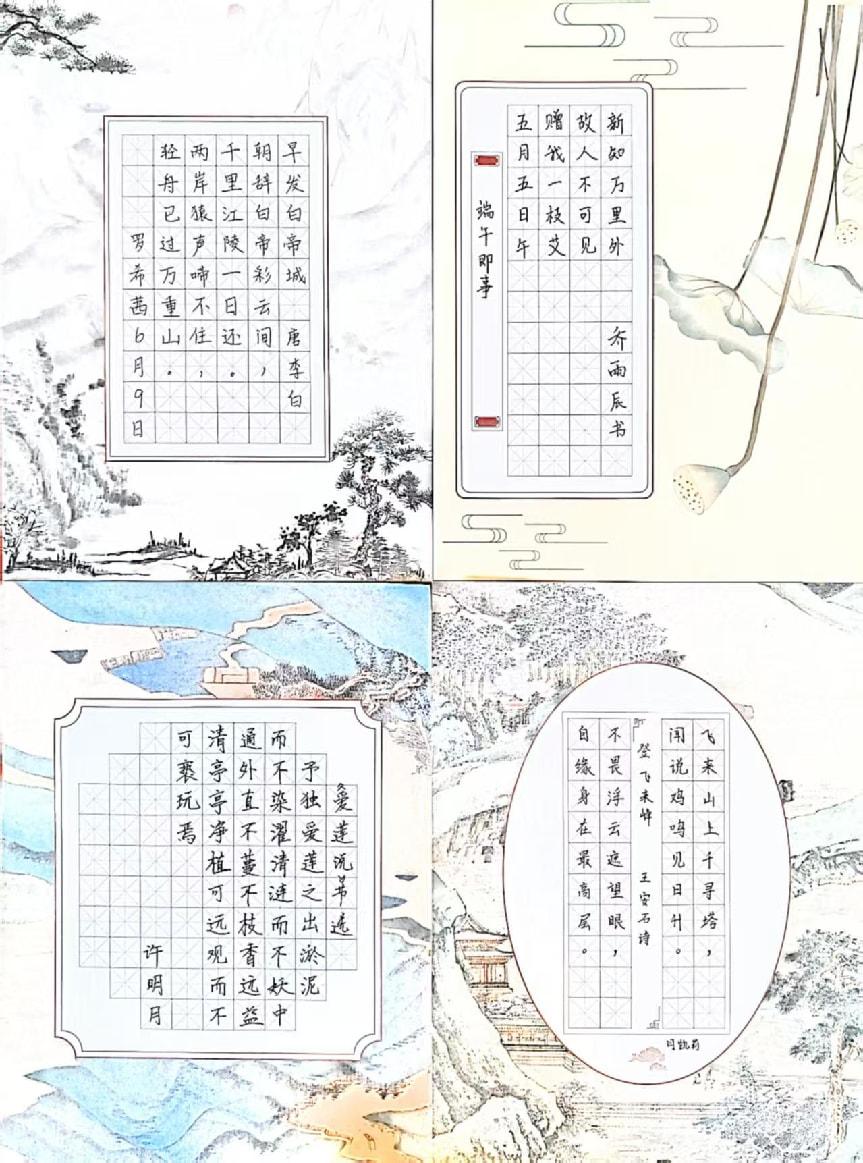 早发白帝城 唐李白
朝辞白帝彩云间，
千里江陵一日还。
两岸猿声啼不住，
轻舟已过万重山。
罗希茜6月9日
新知万里外 乔雨辰书
故人不可见
赠我一枝艾
五月五日午
端午即事
爱莲说节选
予独爱莲之出淤泥
而不染濯清涟而不妖中
通外直不蔓不枝香远益
清亭亭净植可远观而不
可亵玩焉
许明月
飞来山上千寻塔，
闻说鸡鸣见日升。
登飞来峰 王安石诗
不畏浮云遮望眼，
自缘身在最高层。